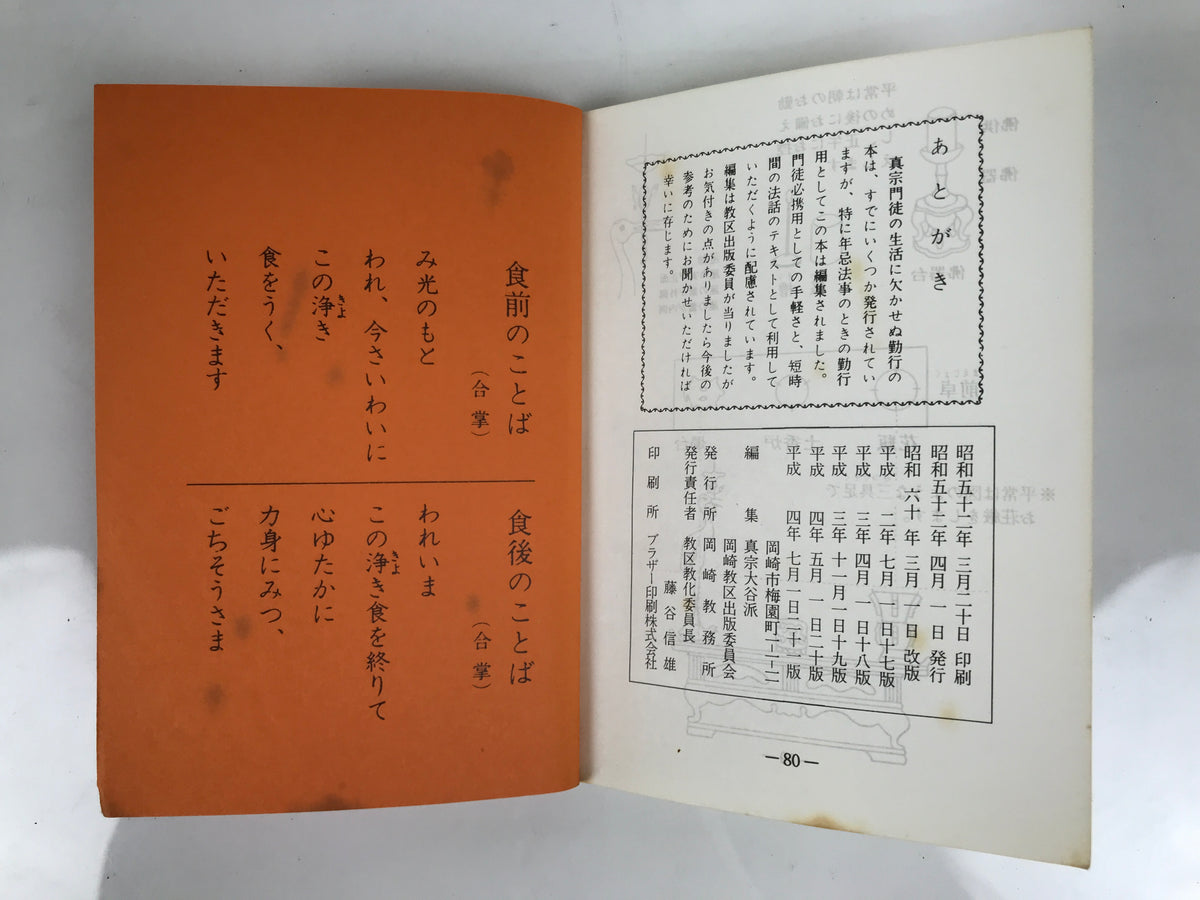 あとがき
真宗門徒の生活に欠かせぬ勤行の
本は、すでにいくつか発行されてい
ますが、特に年忌法事のときの勤行
用としてこの本は編集されました。
門徒必携用としての手軽さと、短時
間の法話のテキストとして利用して
いただくように配慮されています。
編集は教区出版委員が当りましたが
お気付きの点がありましたら今後の
参考のためにお聞かせいただければ
幸いに存じます。
昭和五十二年 三月二十日 印刷
昭和五十二年 四月一日 発行
昭和六十年 三月一日 改版
平成二年 七月一日 十七版
平成三年 四月一日 十八版
平成三年 十一月一日 十九版
平成四年 五月一日 二十版
平成四年 七月一日 二十一版
岡崎市梅園町二-二-二
編集 真宗大谷派
岡崎教区出版委員会
発行所 岡崎教務所
発行責任者 教区教化委員長
藤谷信雄
印刷所 ブラザー印刷株式会社
—80—
食前のことば
(合掌)
み光のもと
われ、今さいわいに
この浄き
きよ
食をうく、
いただきます
食後のことば
(合掌)
われいま
この浄き食を終りて
きよ
心ゆたかに
力身にみつ、
ごちそうさま